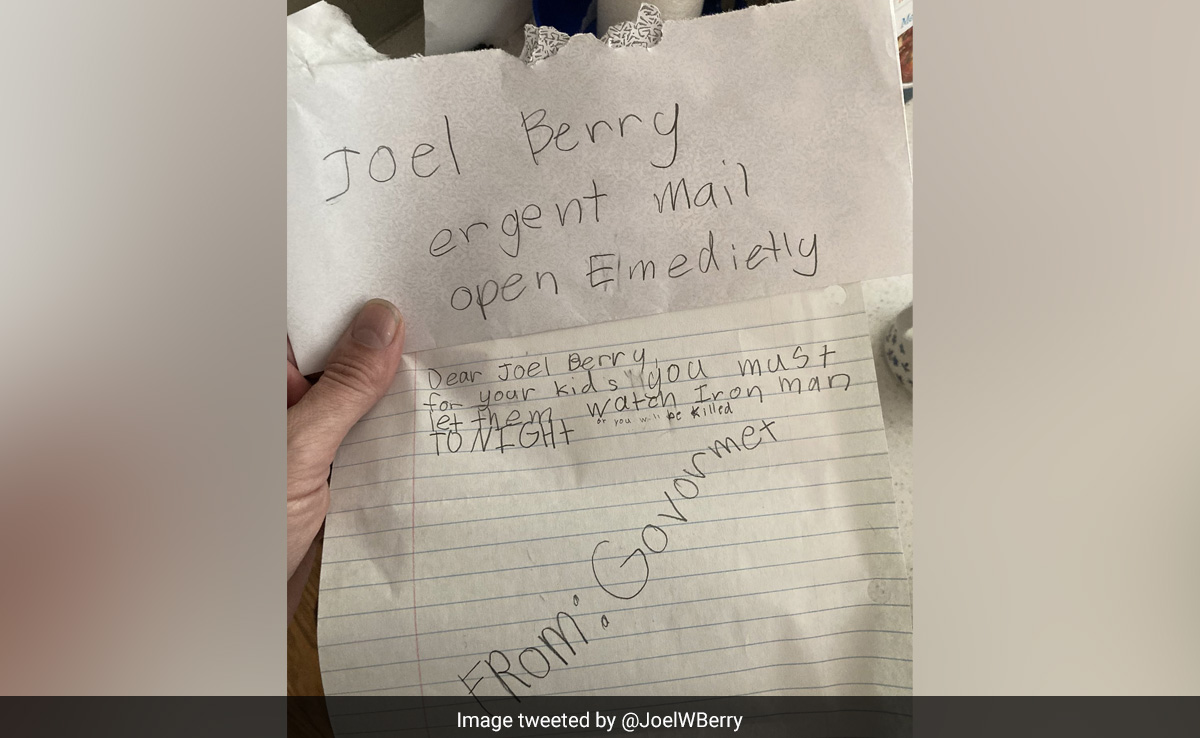 Joel Berry
ergent mail
open Emedietly
Dear Joel Berry,
for your kids you must
let them watch Iron man
or you will be killed
TONIGHt
FROM: Govormet
Image tweeted by @JoelWBerry